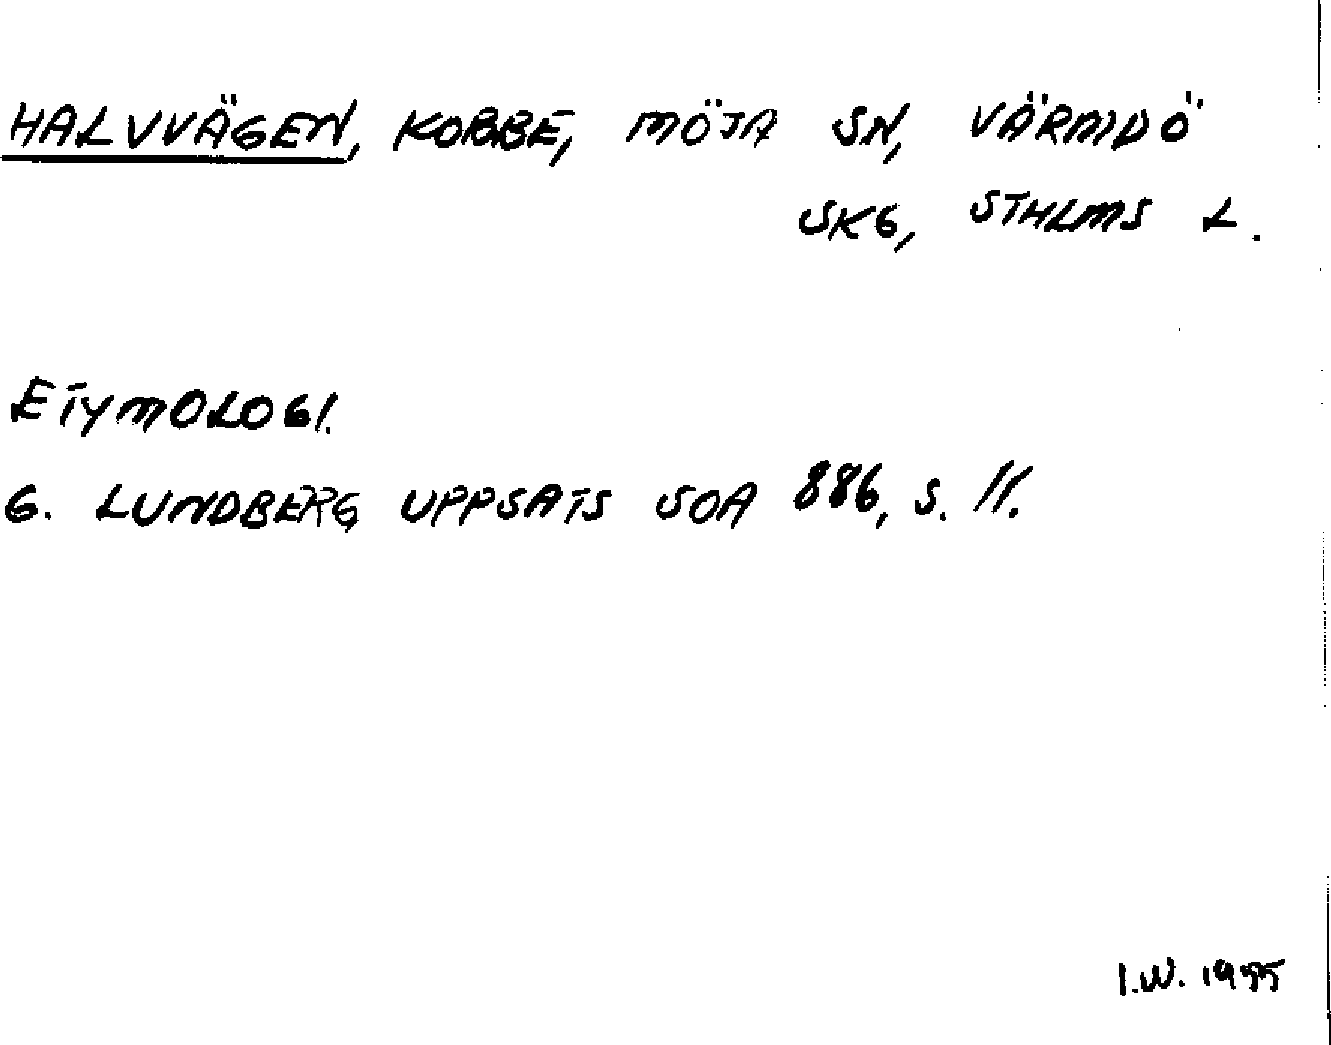 HALVVÄGEN, KOBBE, MÖJA SN, VÄRMDÖ
SKG, STHLMS L.
ETYMOLOGI.
G. LUNDBERG UPPSATS SOA 886, S. 11.
I.W. 1955